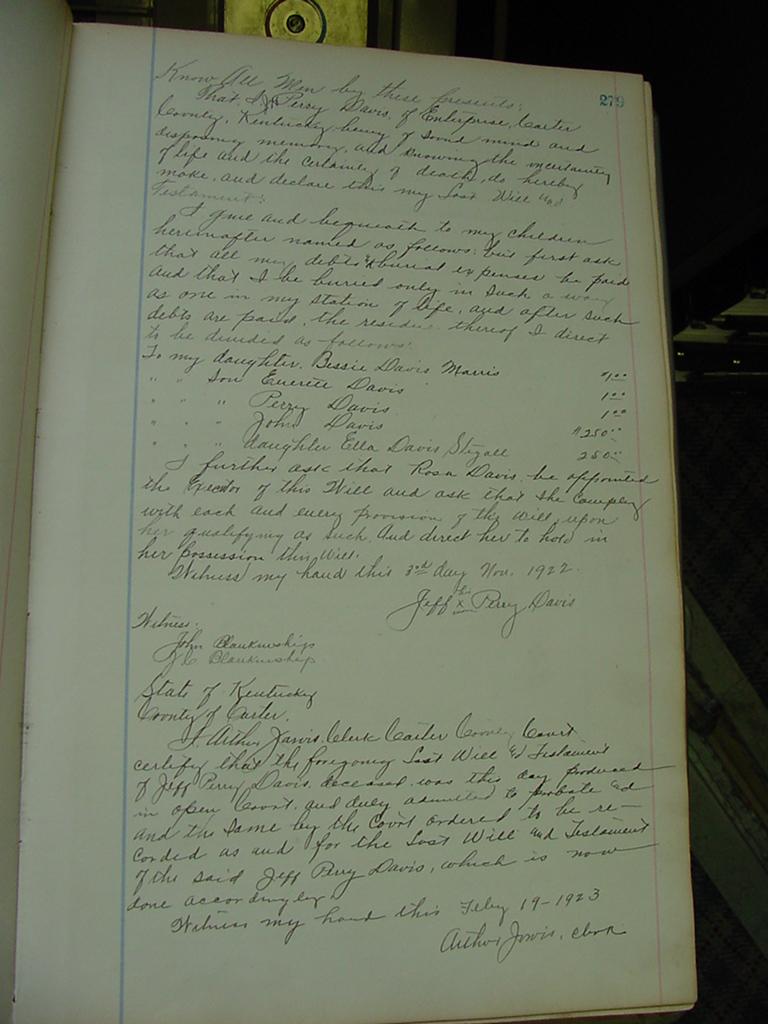 279
Know All Men by these presents:
That, I, Jeff Perry Davis, of Enterprise, Carter
County, Kentucky being of sound mind and
disposing memory, and knowing the uncertainty
of life and the certainty of death, do hereby
make, and declare this my Last Will and
Testament:
I give and bequeath to my children
hereinafter named as follows: but first ask
that all my debts & burial expenses be paid
and that I be buried only in such a way
as one in my station of life, and after such
debts are paid, the residue thereof I direct
to be divided as follows:
To my daughter, Bessie Davis Morris $1.00
" " Son Everett Davis 1.00
" " " Perry Davis 1.00
" " " John Davis $250.00
" " " daughter Ella Davis Stegall 250.00
I further ask that Rosa Davis, be appointed
the Exector of this Will and ask that she comply
with each and every provision of this Will, upon
her qualifying as such. And direct her to hold in
her possession this Will.
Witness my hand this 3rd day Nov. 1922.
Jeff his x Perry Davis
Witness:
John Blankenships
Blankenship
State of Kentucky
County of Carter.
I, Arthur Jarvis, Clerk Carter County Court
certify that the foregoing Last Will & Testament
of Jeff Perry Davis, deceased, was this day produced
in open Court, and duly admitted to probate and
and the same by the Court ordered to be re-
corded as and for the Last Will and Testament
of the said Jeff Perry Davis, which is now
done accordingly.
Witness my hand this Feby 19-1923
Arthur Jarvis, Clerk